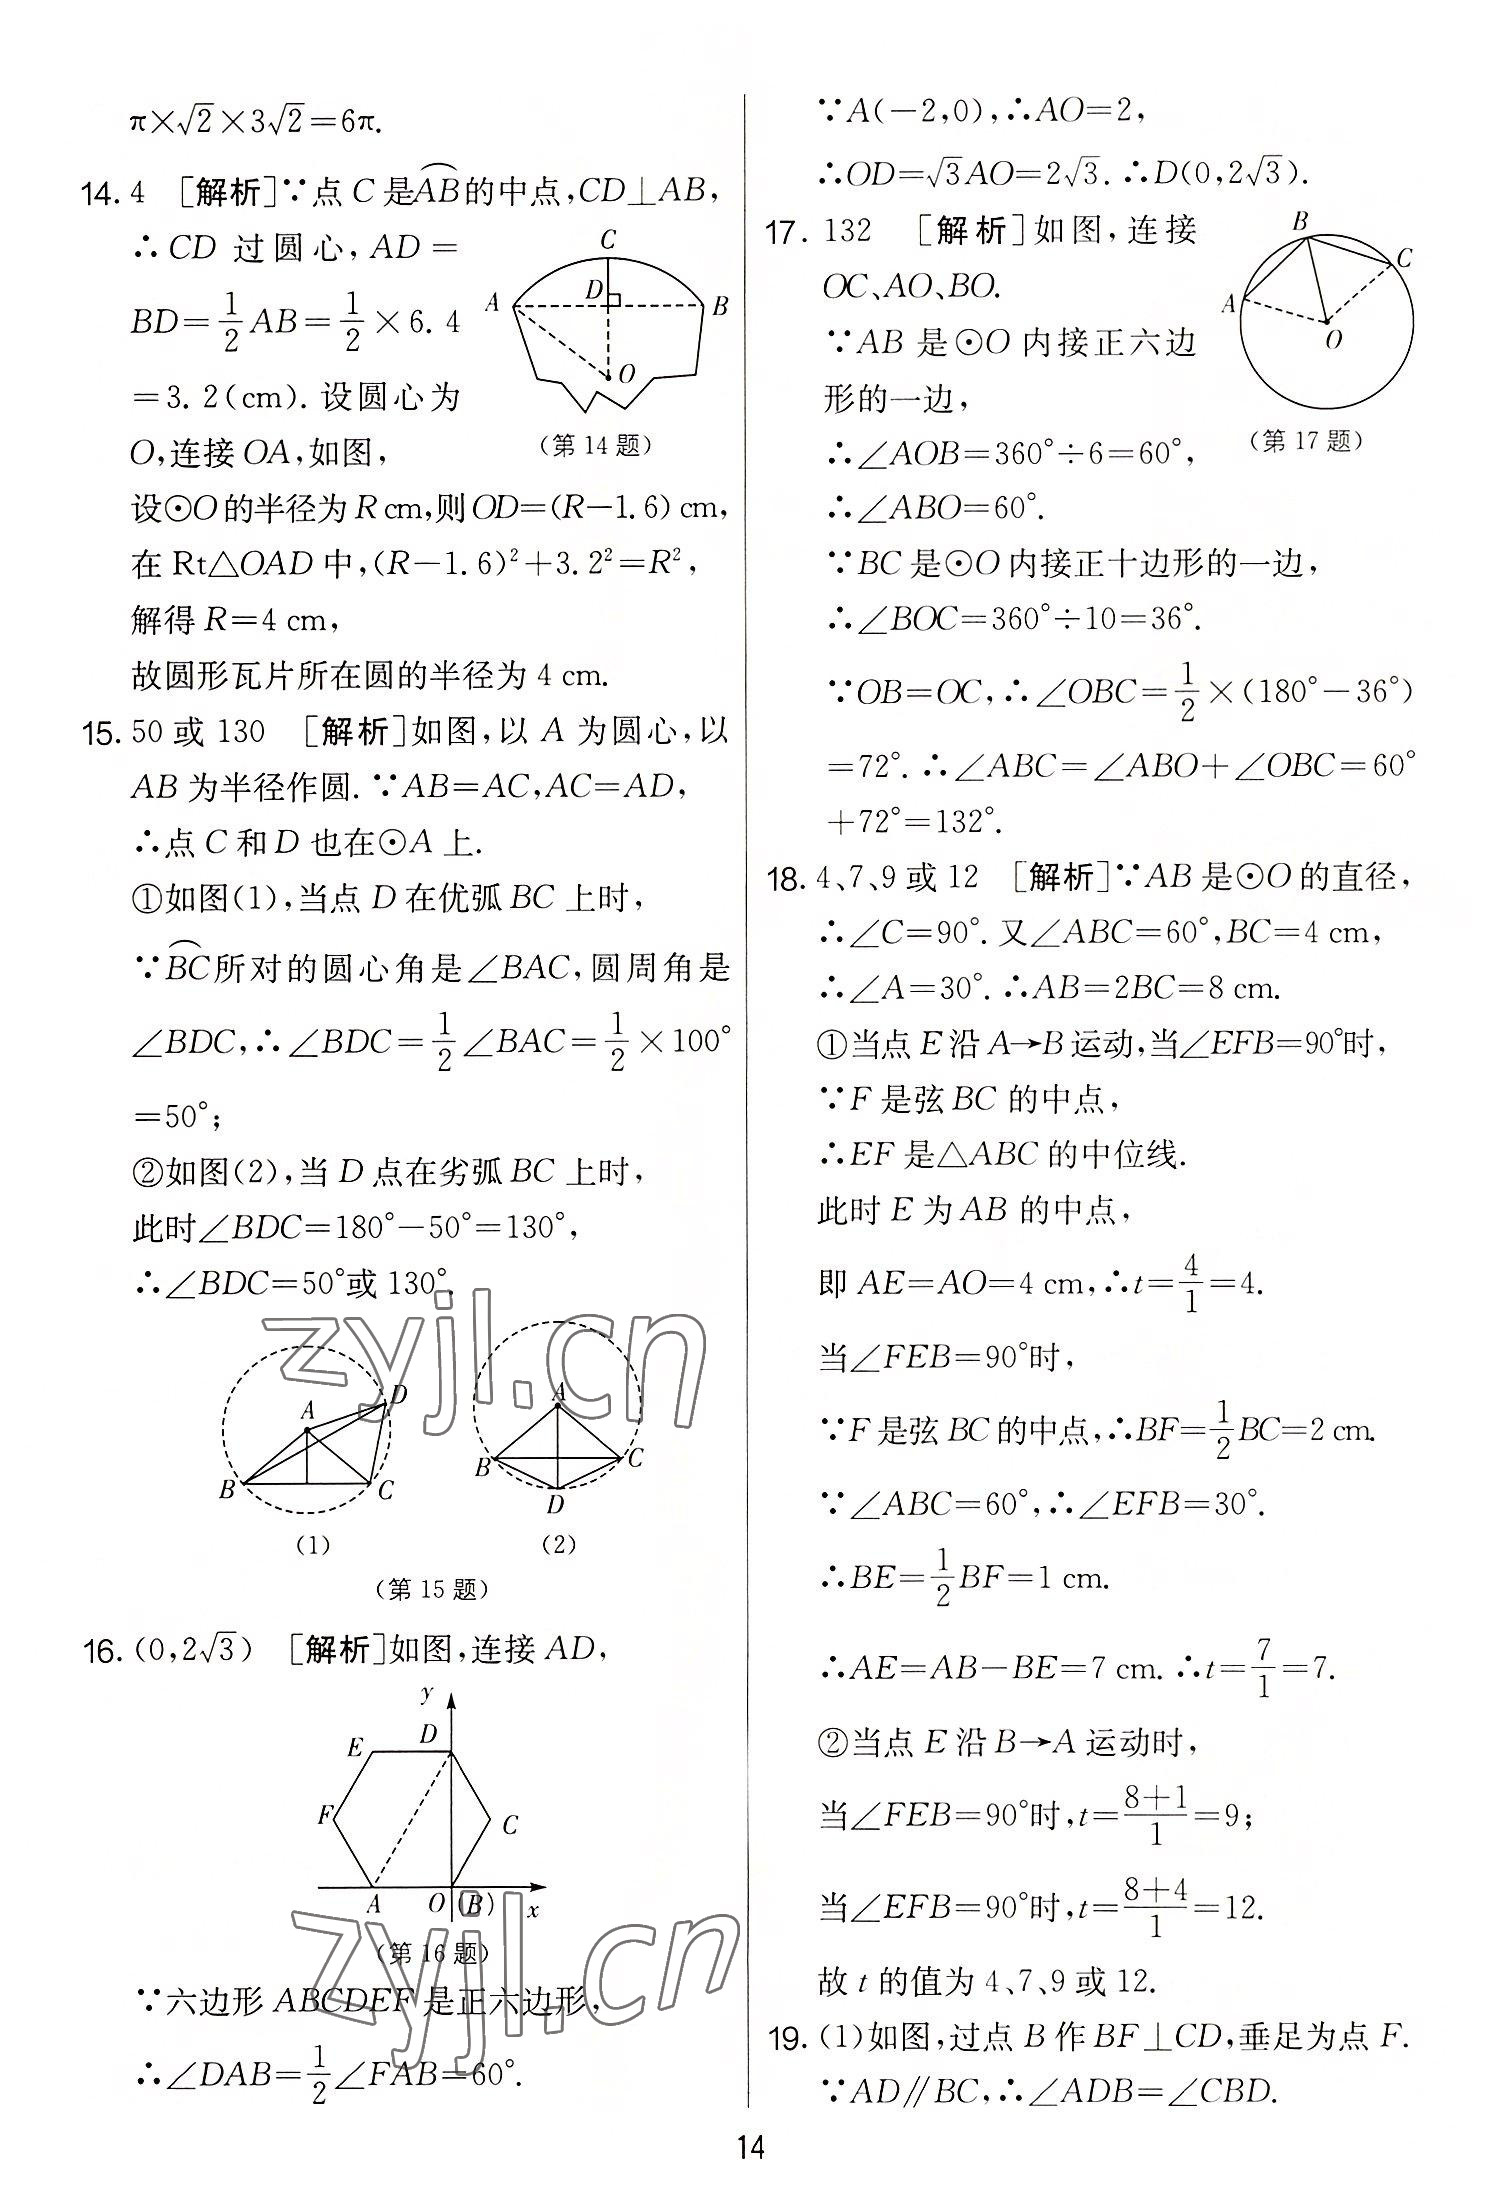 π×√2×3√2=6π.
14. 4 [解析]∵点C是AB的中点,CD⊥AB,
∴CD 过圆心,AD=
BD=1/2AB=1/2×6.4
=3.2(cm).设圆心为
O,连接OA,如图,
C
A
D
B
O
(第14题)
设⊙O的半径为R cm,则OD=(R-1.6) cm,
在Rt△OAD中,(R-1.6)²+3.2²=R²,
解得R=4 cm,
故圆形瓦片所在圆的半径为4 cm.
15. 50或130 [解析]如图,以A为圆心,以
AB为半径作圆.∵AB=AC,AC=AD,
∴点C和D也在⊙A上.
①如图(1),当点D在优弧BC上时,
∵BC所对的圆心角是∠BAC,圆周角是
∠BDC,∴∠BDC=1/2∠BAC=1/2×100°
=50°;
②如图(2),当D点在劣弧BC上时,
此时∠BDC=180°-50°=130°,
∴∠BDC=50°或130°.
zyjl.cn
A
D
B
C
(1)
A
B
C
D
(2)
(第15题)
16. (0,2√3) [解析]如图,连接AD,
y
E
D
F
C
A
O
(B)
x
(第16题)
zyjl.cn
∵六边形ABCDEF是正六边形,
∴∠DAB=1/2∠FAB=60°.
∵A(-2,0),∴AO=2,
∴OD=√3AO=2√3.∴D(0,2√3).
17. 132 [解析]如图,连接
OC、AO、BO.
∵AB是⊙O内接正六边
形的一边,
B
C
A
O
(第17题)
∴∠AOB=360°÷6=60°,
∴∠ABO=60°.
∵BC是⊙O内接正十边形的一边,
∴∠BOC=360°÷10=36°.
∵OB=OC,∴∠OBC=1/2×(180°-36°)
=72°.∴∠ABC=∠ABO+∠OBC=60°
+72°=132°.
18. 4、7、9或12 [解析]∵AB是⊙O的直径,
∴∠C=90°.又∠ABC=60°,BC=4 cm,
∴∠A=30°.∴AB=2BC=8 cm.
①当点E沿A→B运动,当∠EFB=90°时,
∵F是弦BC的中点,
∴EF是△ABC的中位线.
此时E为AB的中点,
即AE=AO=4 cm,∴t=4/1=4.
当∠FEB=90°时,
∵F是弦BC的中点,∴BF=1/2BC=2 cm.
∵∠ABC=60°,∴∠EFB=30°.
∴BE=1/2BF=1 cm.
∴AE=AB-BE=7 cm.∴t=7/1=7.
②当点E沿B→A运动时,
当∠FEB=90°时,t=(8+1)/1=9;
当∠EFB=90°时,t=(8+4)/1=12.
故t的值为4、7、9或12.
19. (1)如图,过点B作BF⊥CD,垂足为点F.
∵AD∥BC,∴∠ADB=∠CBD.
14